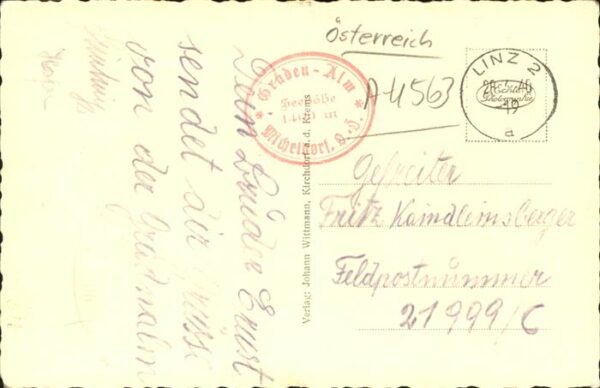 Österreich
A-4563
LINZ 2
19
a
Echte
Photographie
Graden-Alm
Seehöhe
1400 m
Micheldorf, O.-D.
Verlag: Johann Wittmann, Kirchdorf a. d. Krems
Gefreiter
Fritz Kaindleinsberger
Feldpostnummer
21999/C
Dein Bruder Ernst
sendet dir Grüsse
von der Gradnalm